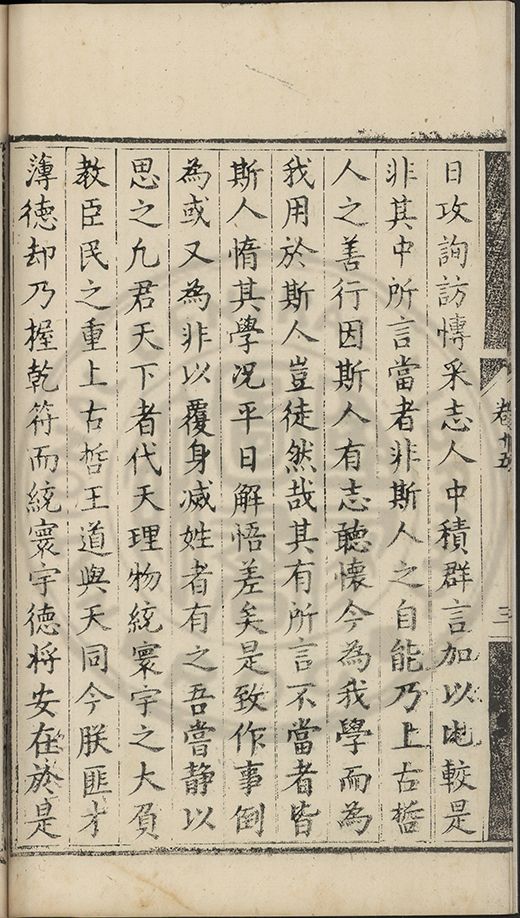 卷十五
三
日攻詢訪博采志人中積群言加以比較是
非其中所言當者非斯人之自能乃上古哲
人之善行因斯人有志聽懷今為我學而為
我用於斯人豈徒然哉其有所言不當者皆
斯人惰其學况平日解悟差矣是致作事倒
為或又為非以覆身滅姓者有之吾嘗静以
思之九君天下者代天理物統寰宇之大負
教臣民之重上古哲王道與天同今朕匪才
薄德却乃握乾符而統寰宇德将安在於是